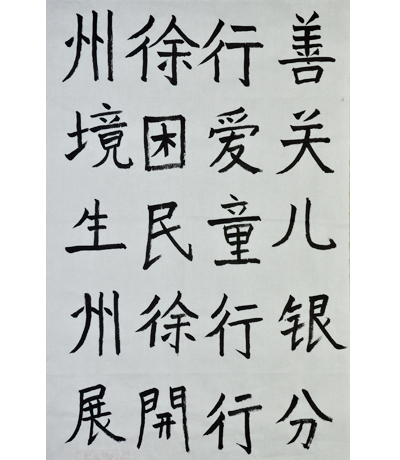 善行徐州
关爱困境
儿童民生
银行徐州
分行開展